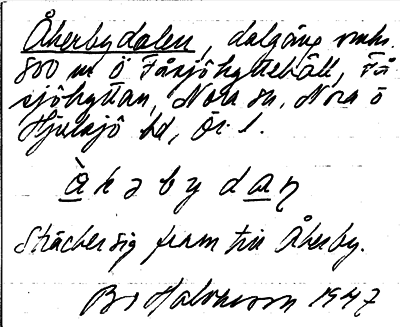 Åkerbydalen, dalgång omkr.
800 m ö Fåsjöhyttehäll, Få
sjöhyttan, Nora sn, Nora o
Hjulsjö bd, Ör. l.
àkəbydaṇ
Sträcker sig fram till Åkerby.
Bo 1947